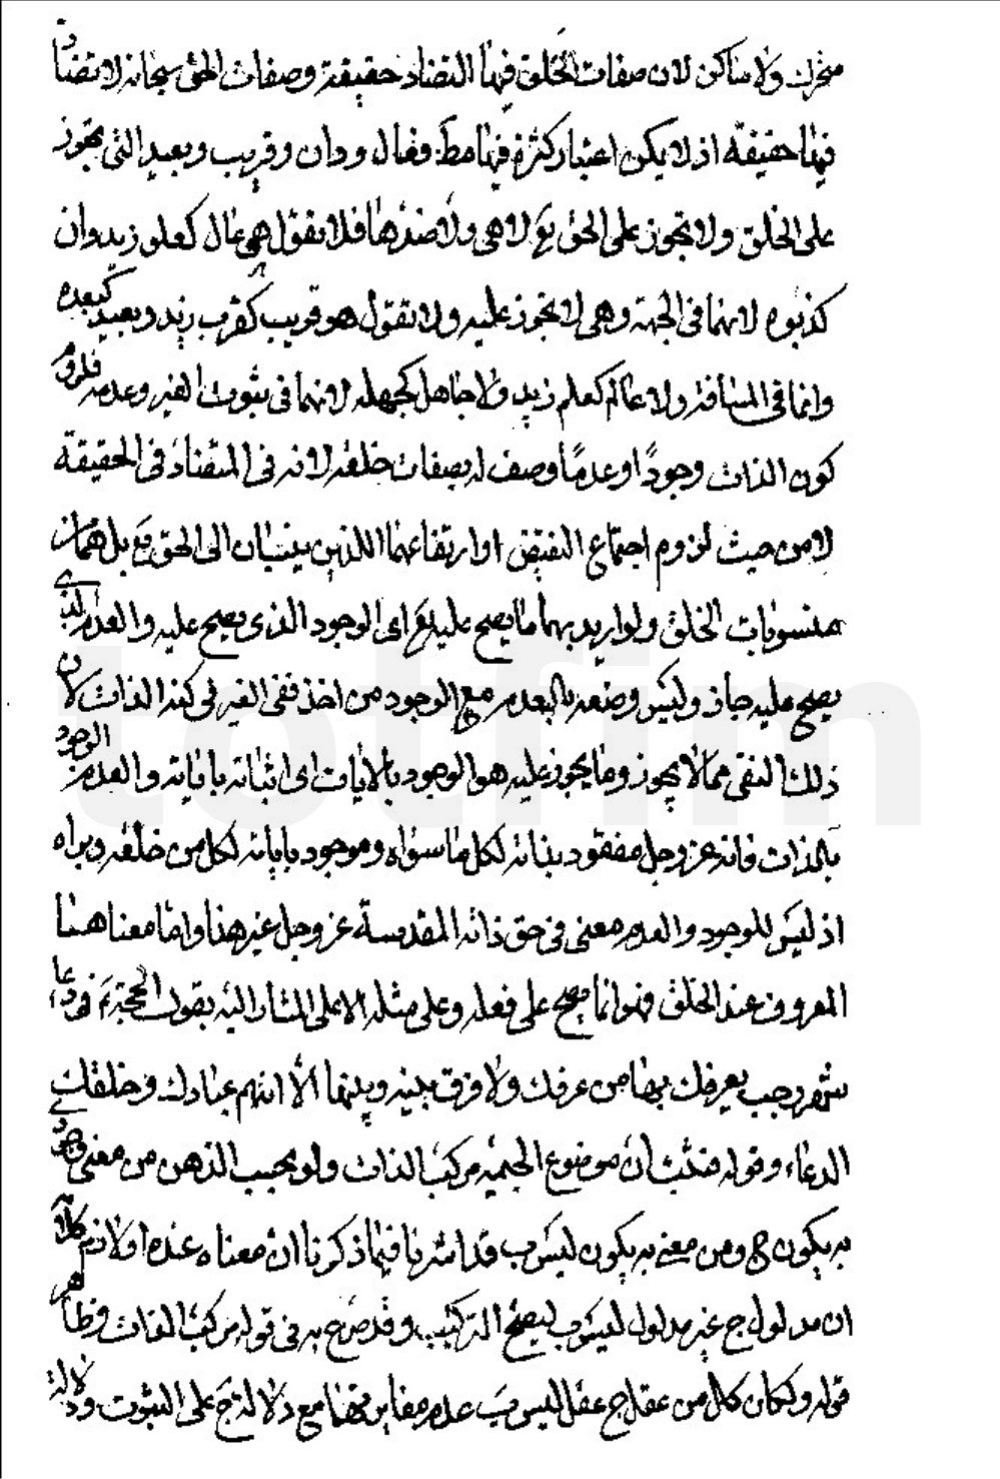 متحرك ولا ساكن لان صفات الخلق فيها التضاد حقيقة وصفات الحق سبحانه لا تضاد
فيها حقيقة اذ لا يمكن اعتبار كثرة فيها مط فعال ودان وقريب وبعيد التى تجوز
على الخلق ولا تجوز على الحق تع لا هى ولا ضدها فلا تقول هو عال كعلو زيد ودان
كدنوه لانهما فى الجهة وهى لا تجوز عليه ولا تقول هو قريب كقرب زيد وبعيد كبعده
وانما فى المسافة ولا عالم كعلم زيد ولا جاهل كجهله لانهما فى ثبوت الغير وعدمه فلو
كون الذات وجودًا وعدمًا وصف له بصفات خلقه لانه فى المتضاد فى الحقيقة
لا من حيث لزوم اجتماع النقيض او ارتفاعهما اللذين ينسبان الى الحق تع بل هما من
منسوبات الخلق ولو اريد بهما ما يصح عليه تع اى الوجود الذى يصح عليه والعدم الذى
يصح عليه جاز وليس وضعه بالعدم مع الوجود من اخذ نفى الغير فى كنه الذات لان
ذلك النفى مما لا يجوز وما يجوز عليه هو الوجود بالايات اى اثباته باياته والعدم الوجود
بالذات فانه عز وجل مفقود بذاته لكل ما سواه وموجود باياته لكل من خلقه وبراه
اذ ليس للوجود والعدم معنى فى حق ذاته المقدسة عز وجل غير هذا واما معناهما
المعروف عند الخلق فهو انما يصح على فعله وعلى مثله الاعلى المشار اليه بقول الحجة ع فى دعاء
شهر رجب يعرفك بها من عرفك ولا فرق بينه وبينها الا انهم عبادك وخلقك
الدعاء وقوله فثبت ان موضوع الجيمية مركب الذات ولو بحسب الذهن من معنى وجودى
به يكون ج ومن معنى به يكون ليس ب قد اشرنا فيما ذكرنا ان معناه عنده او لازم كلامه
ان مدلول ج غير مدلول ليس ب ليصح التركيب وقد صرع به فى قوله مركب الذات وظاهر
قوله ولكان كل من عقل ج عقل ليس ب عدم مغايرتهما مع دلالة ج على الثبوت ودلالة